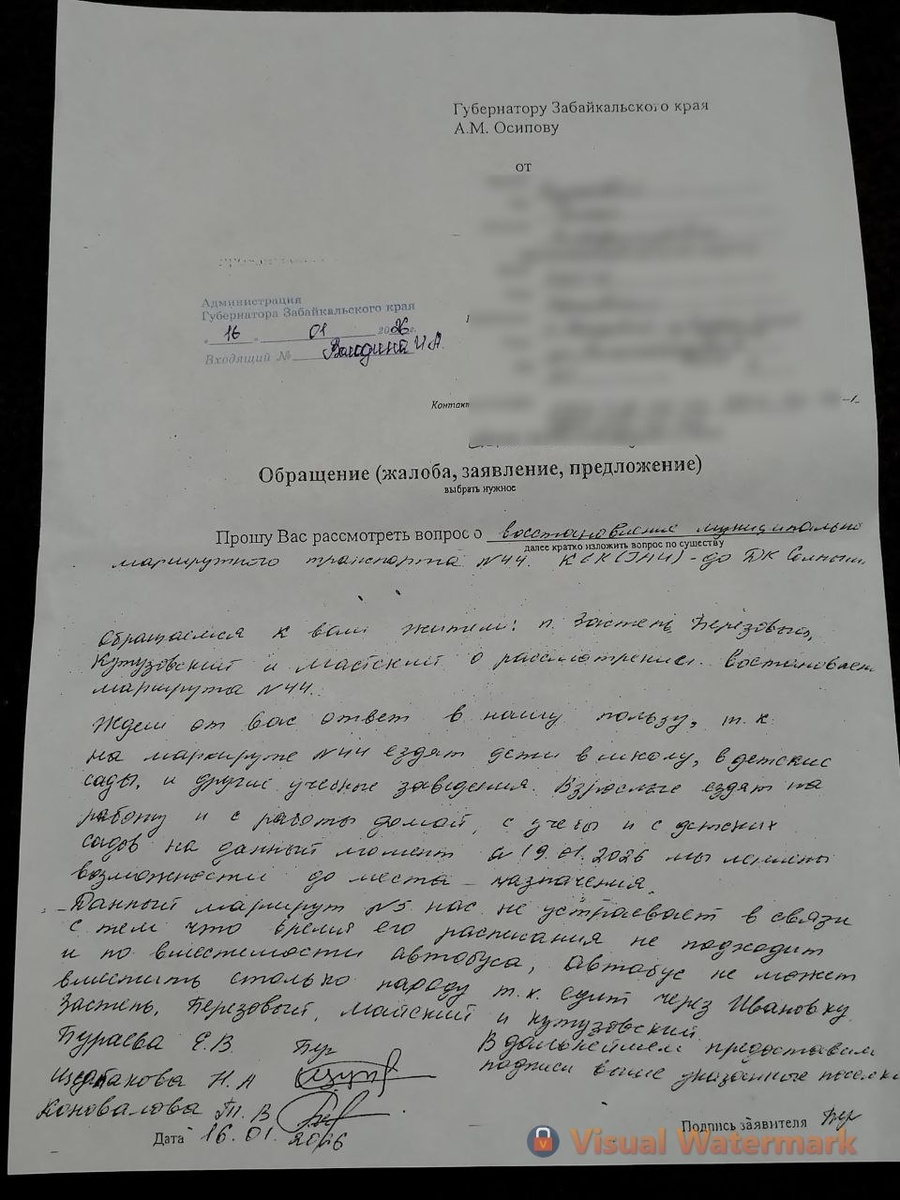 Губернатору Забайкальского края
А.М. Осипову
от
Администрация
Губернатора Забайкальского края
"16" 01 2026 г.
Входящий № Володина И.А.
Контакт
Обращение (жалоба, заявление, предложение)
выбрать нужное
Прошу Вас рассмотреть вопрос о восстановление муниципально
далее кратко изложить вопрос по существу
маршрутного транспорта №44. КСК (ГНИ) - до ДК
Обращаемся к вам жители: п. Застепь, Берёзовый,
Кутузовский и Майский о рассмотрении. Востановлен
маршрута №44.
Ждем от вас ответ в нашу пользу, т.к.
на маршруте №44 ездят дети в школу, в детские
сады, и другие учебные заведения. Взрослые ездят на
работу и с работы домой, с учебы и с детских
садов на данный момент с 19.01.2026 мы лешены
возможности до места назначения.
Данный маршрут №5 нас не устраевает в связи
с тем что время его расписания не подходит
и по вместимости автобуса, Автобус не может
вместить столько народу т.к. едит через Ивановку
Застепь, Березовый, Майский и Кутузовский.
Бураева Е.В. Бур
В дальнейшем предоставим
Н.А
подписи выше указанные поселки
Коновалова Т.В
Дата 16.01.2026
Подпись заявителя Бур
Visual Watermark